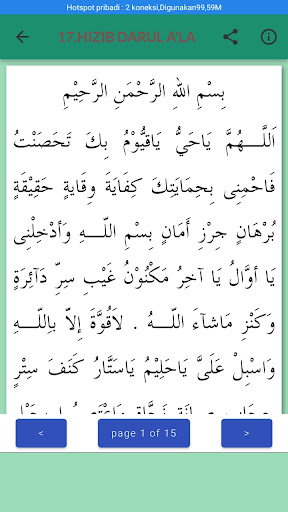 Hotspot pribadi : 2 koneksi,Digunakan99,59M
17.HIZIB DARUL A'LA
بِسْمِ اللهِ الرَّحْمَنِ الرَّحِيْمِ
اَللَّـــهُمَّ يَاحَيُّ يَاقَيُّوْمُ بِكَ تَحَصَنْتُ
فَاحْمِنِى بِحِمَايَتِكَ كِفَايَةَ وِقَايَةٍ حَقِيْقَةٍ
بُرْهَانٍ حِرْزِ أَمَانٍ بِسْمِ اللّـــهِ وَأَدْخِلْنِى
يَا أَوَّالُ يَا آخِرُ مَكْنُوْنُ غَيْبِ سِرِّ دَآئِرَةِ
وَكَنْزِ مَاشَآءَ اللّـــهُ . لاَقُوَّةَ إِلاَّ بِاللّـــهِ
وَاسْبِلْ عَلَيَّ يَاحَلِيْمُ يَاسَتَّارُ كَنَفَ سِتْرِ
<
page 1 of 15
>